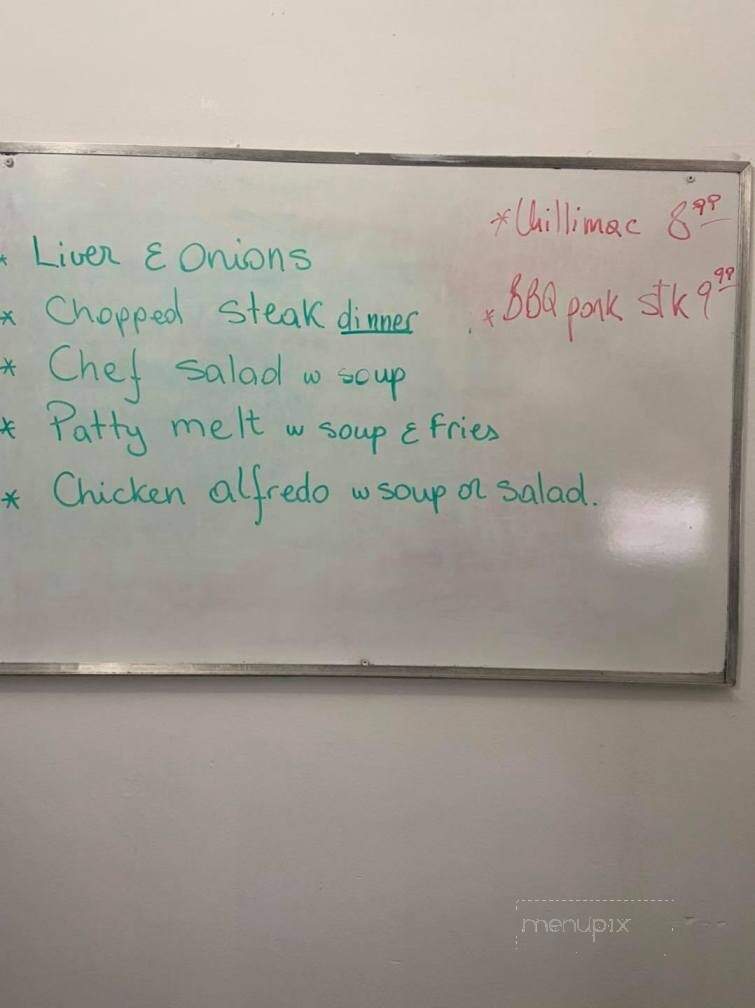 * Chillimac 8.99
* Liver & Onions
* BBQ pork stk 9.99
* Chopped steak dinner
* Chef salad w soup
* Patty melt w soup & fries
* Chicken alfredo w soup or salad.
menupix